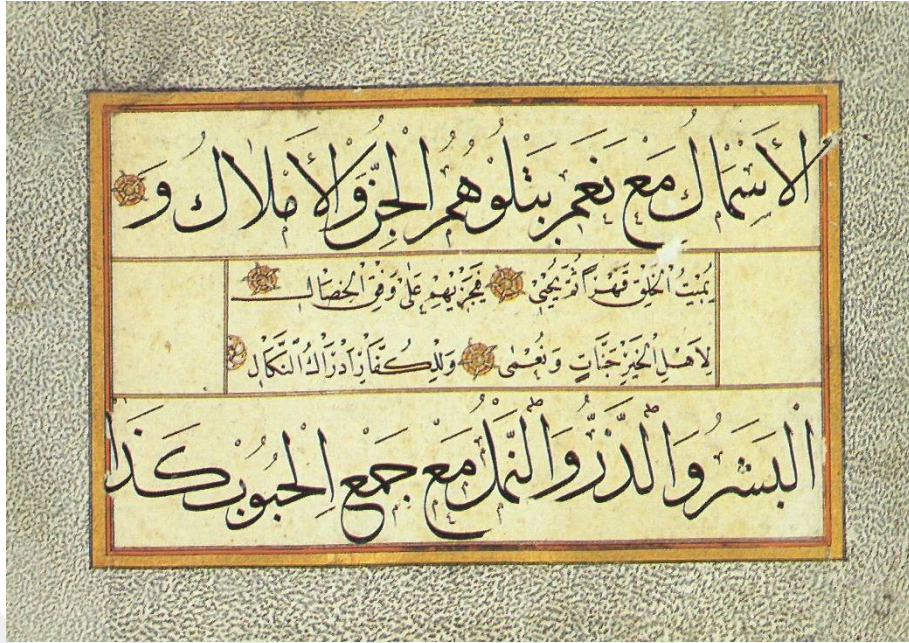 الأَسْمَاكِ مَعْ نَعَمٍ يَتْلُوهُمُ الْجِنُّ وَالأَمْلَاكُ وَ
يُمِيتُ الْخَلْقَ قَهْرًا ثُمَّ يُحْيِي فَيَجْزِيهِمْ عَلَى وَفْقِ الْخِصَالِ
لِاَهْلِ الْخَيْرِ جَنَّاتٌ وَنُعْمَى وَلِلْكُفَّارِ اِدْرَاكُ النَّكَالِ
الْبَشَرُ وَالذَّرُّ وَالنَّمْلُ مَعْ جَمْعِ الْحُبُوبِ كَذَا